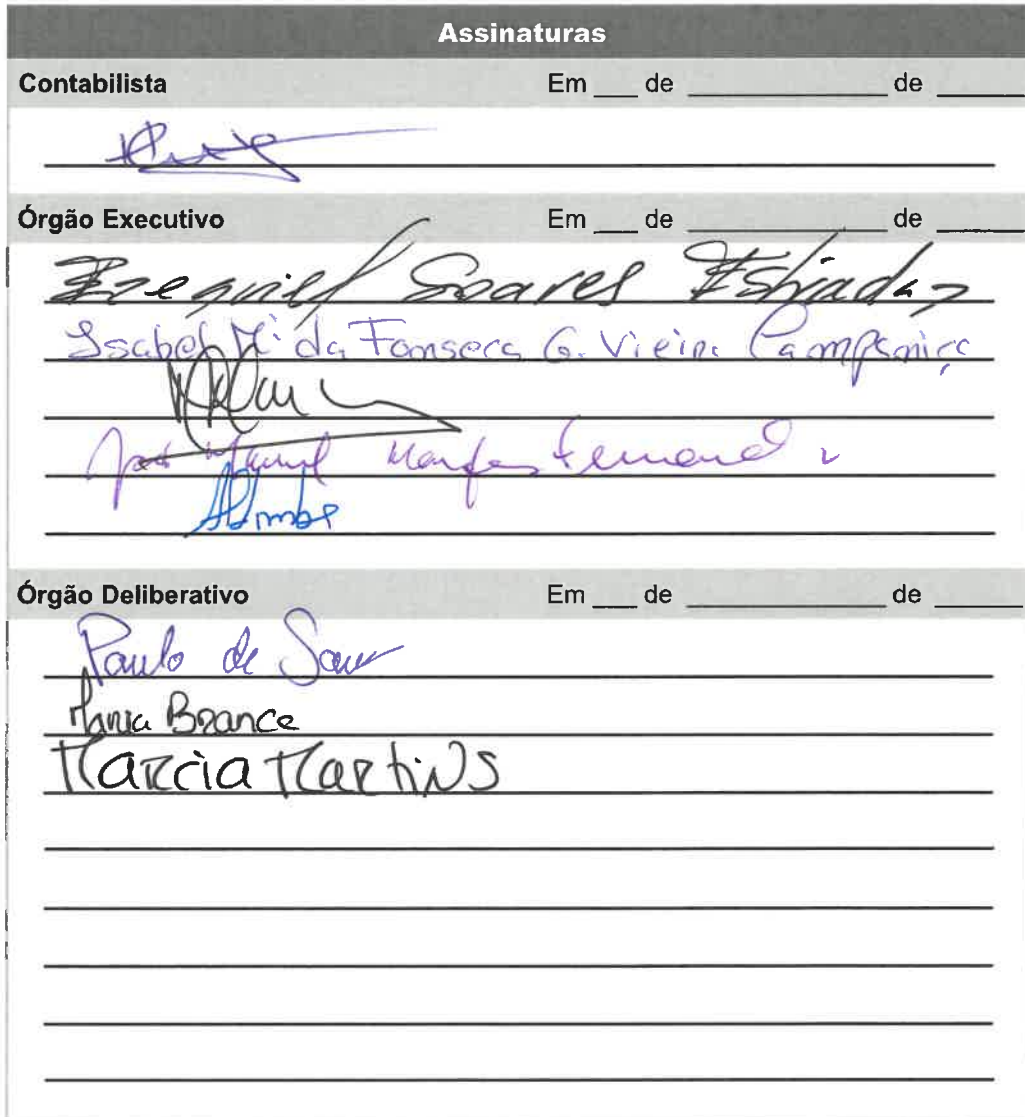 Assinaturas
Contabilista Em ___ de ____________ de _____
Órgão Executivo Em ___ de ____________ de _____
Ezequiel Soares Estradas
Isabel Mª da Fonseca G. Vieira Campaniça
José Manuel Fernand
Órgão Deliberativo Em ___ de ____________ de _____
Paulo de
Maria Branco
Marcia Martins